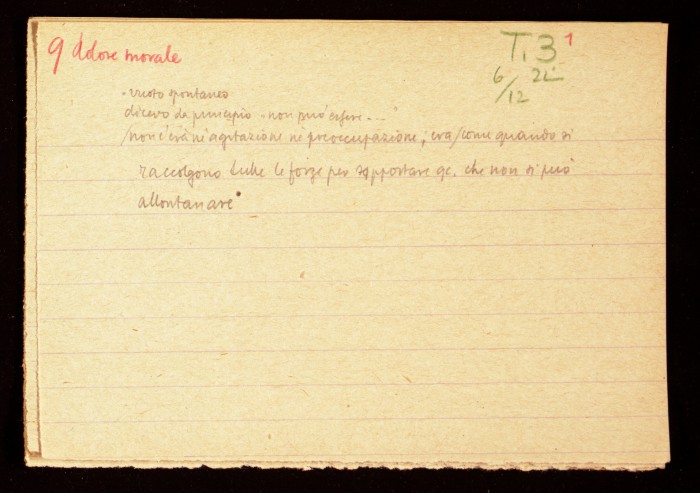 9 dolore morale
T. 3 1
6/12
- vuoto spontaneo
dicevo da principio - non può essere ...
/non c'era nè agitazione nè preoccupazione; era/come quando si
raccolgono tutte le forze per sopportare qc. che non si può
allontanare"